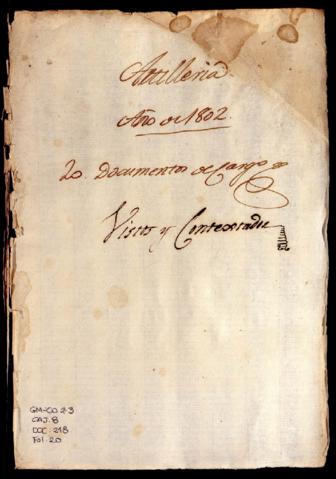 Artilleria.
Año de 1802.
20. Documentos de Cargo
Vistos y Contextados
GM-CO 2-3
CAJ. 8
DOC. 218
Fol. 20